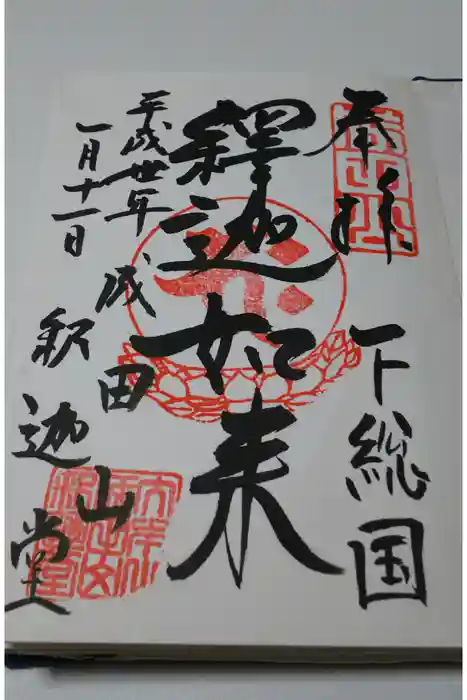 奉拝
下総国
釋迦如来
成田山
釈迦堂
平成卅年
一月十一日